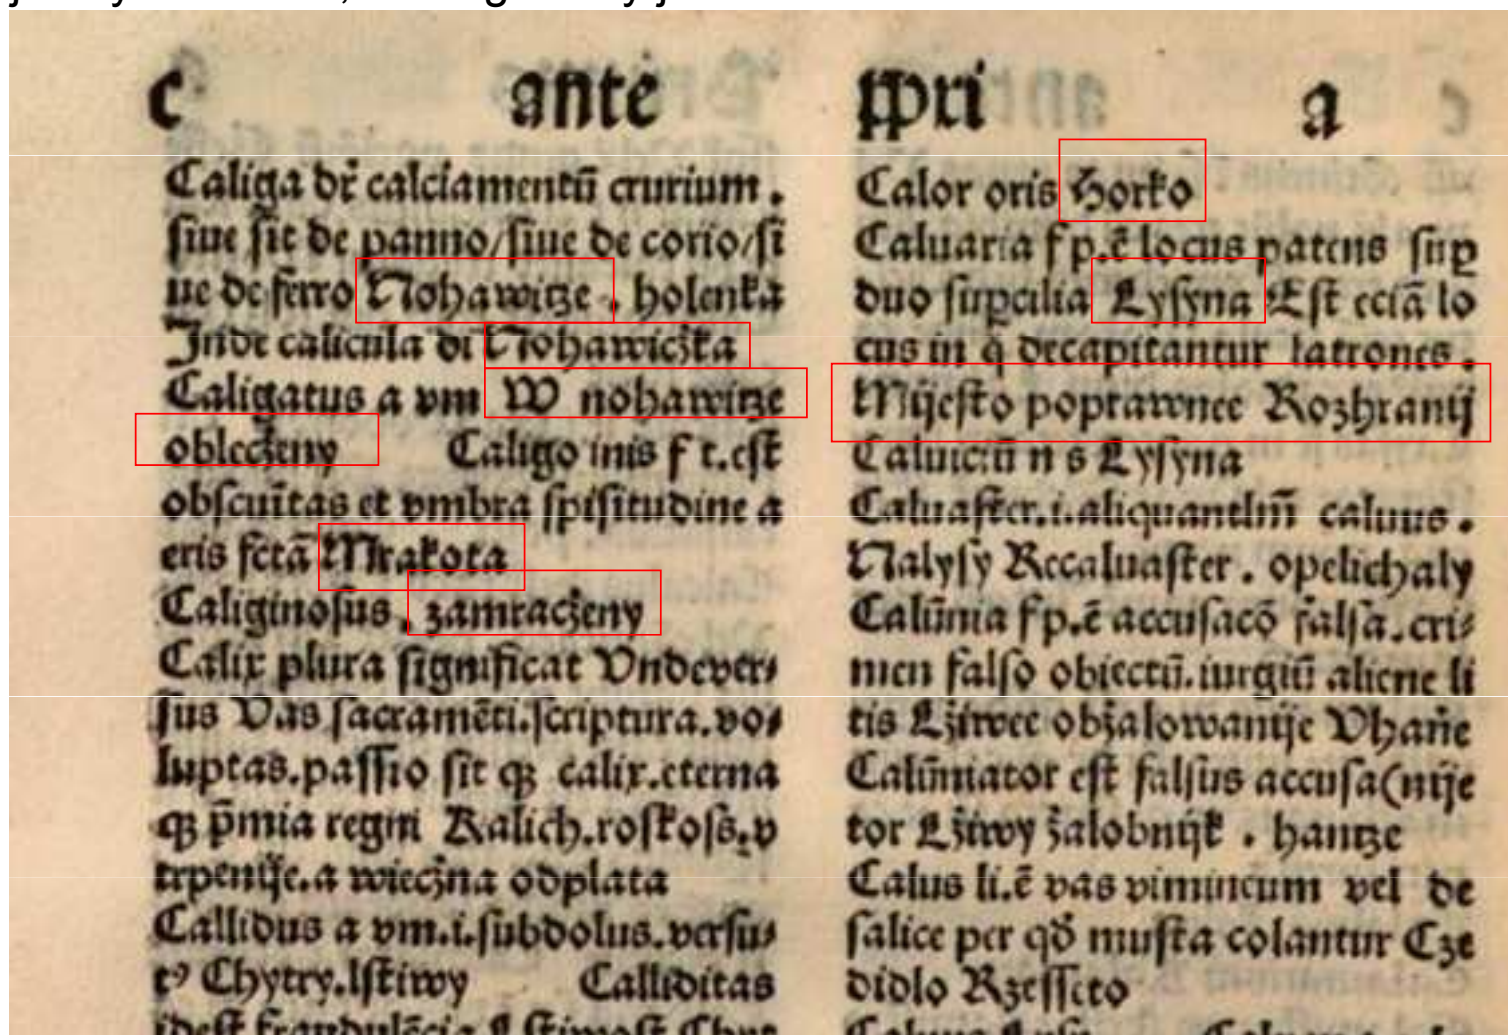 c ante ppri a
Caliga dr̃ calciamentū crurium .
siue sit de panno/siue de corio/si
ue de ferro Nohawicze . holenka
Inde calicula di Nohawiczka
Caligatus a vm W nohawicze
obleczeny Caligo inis f t.est
obscuĩtas et vmbra spisitudine a
eris fctã Mrakota
Caliginosus . zamraczeny
Calix plura significat Vndever⸗
sus Vas sacramẽti.scriptura.vo⸗
luptas.passio sit qꝫ calix.eterna
qꝫ p̃mia regni Kalich.roskoss.v
trpenije.a wieczna odplata
Callidus a vm.i.subdolus.versu⸗
tꝰ Chytry.lstiwy Calliditas
idest fraudulẽcia Lstiwost Chyt
Calor oris Horko
Caluaria f p.ẽ locus patens sup
duo supcilia Lysyna Est eciã lo
cus in q̃ decapitantur latrones .
Mijesto poprawnee Rozhranij
Caluiciũ n s Lysyna
Caluaster.i.aliquantlm̃ caluus .
Nalysy Recaluaster . opelichaly
Calũnia f p.ẽ accusacõ falsa.cri⸗
men falso obiectũ.iurgiũ aliene li
tis Lžiwee obžalowanije Vhañe
Calũniator est falsus accusa(nije
tor Lžiwy žalobnijk . hancze
Calus li.ẽ vas vimineum vel de
salice per qõ musta colantur Cze
didlo Rzesseto